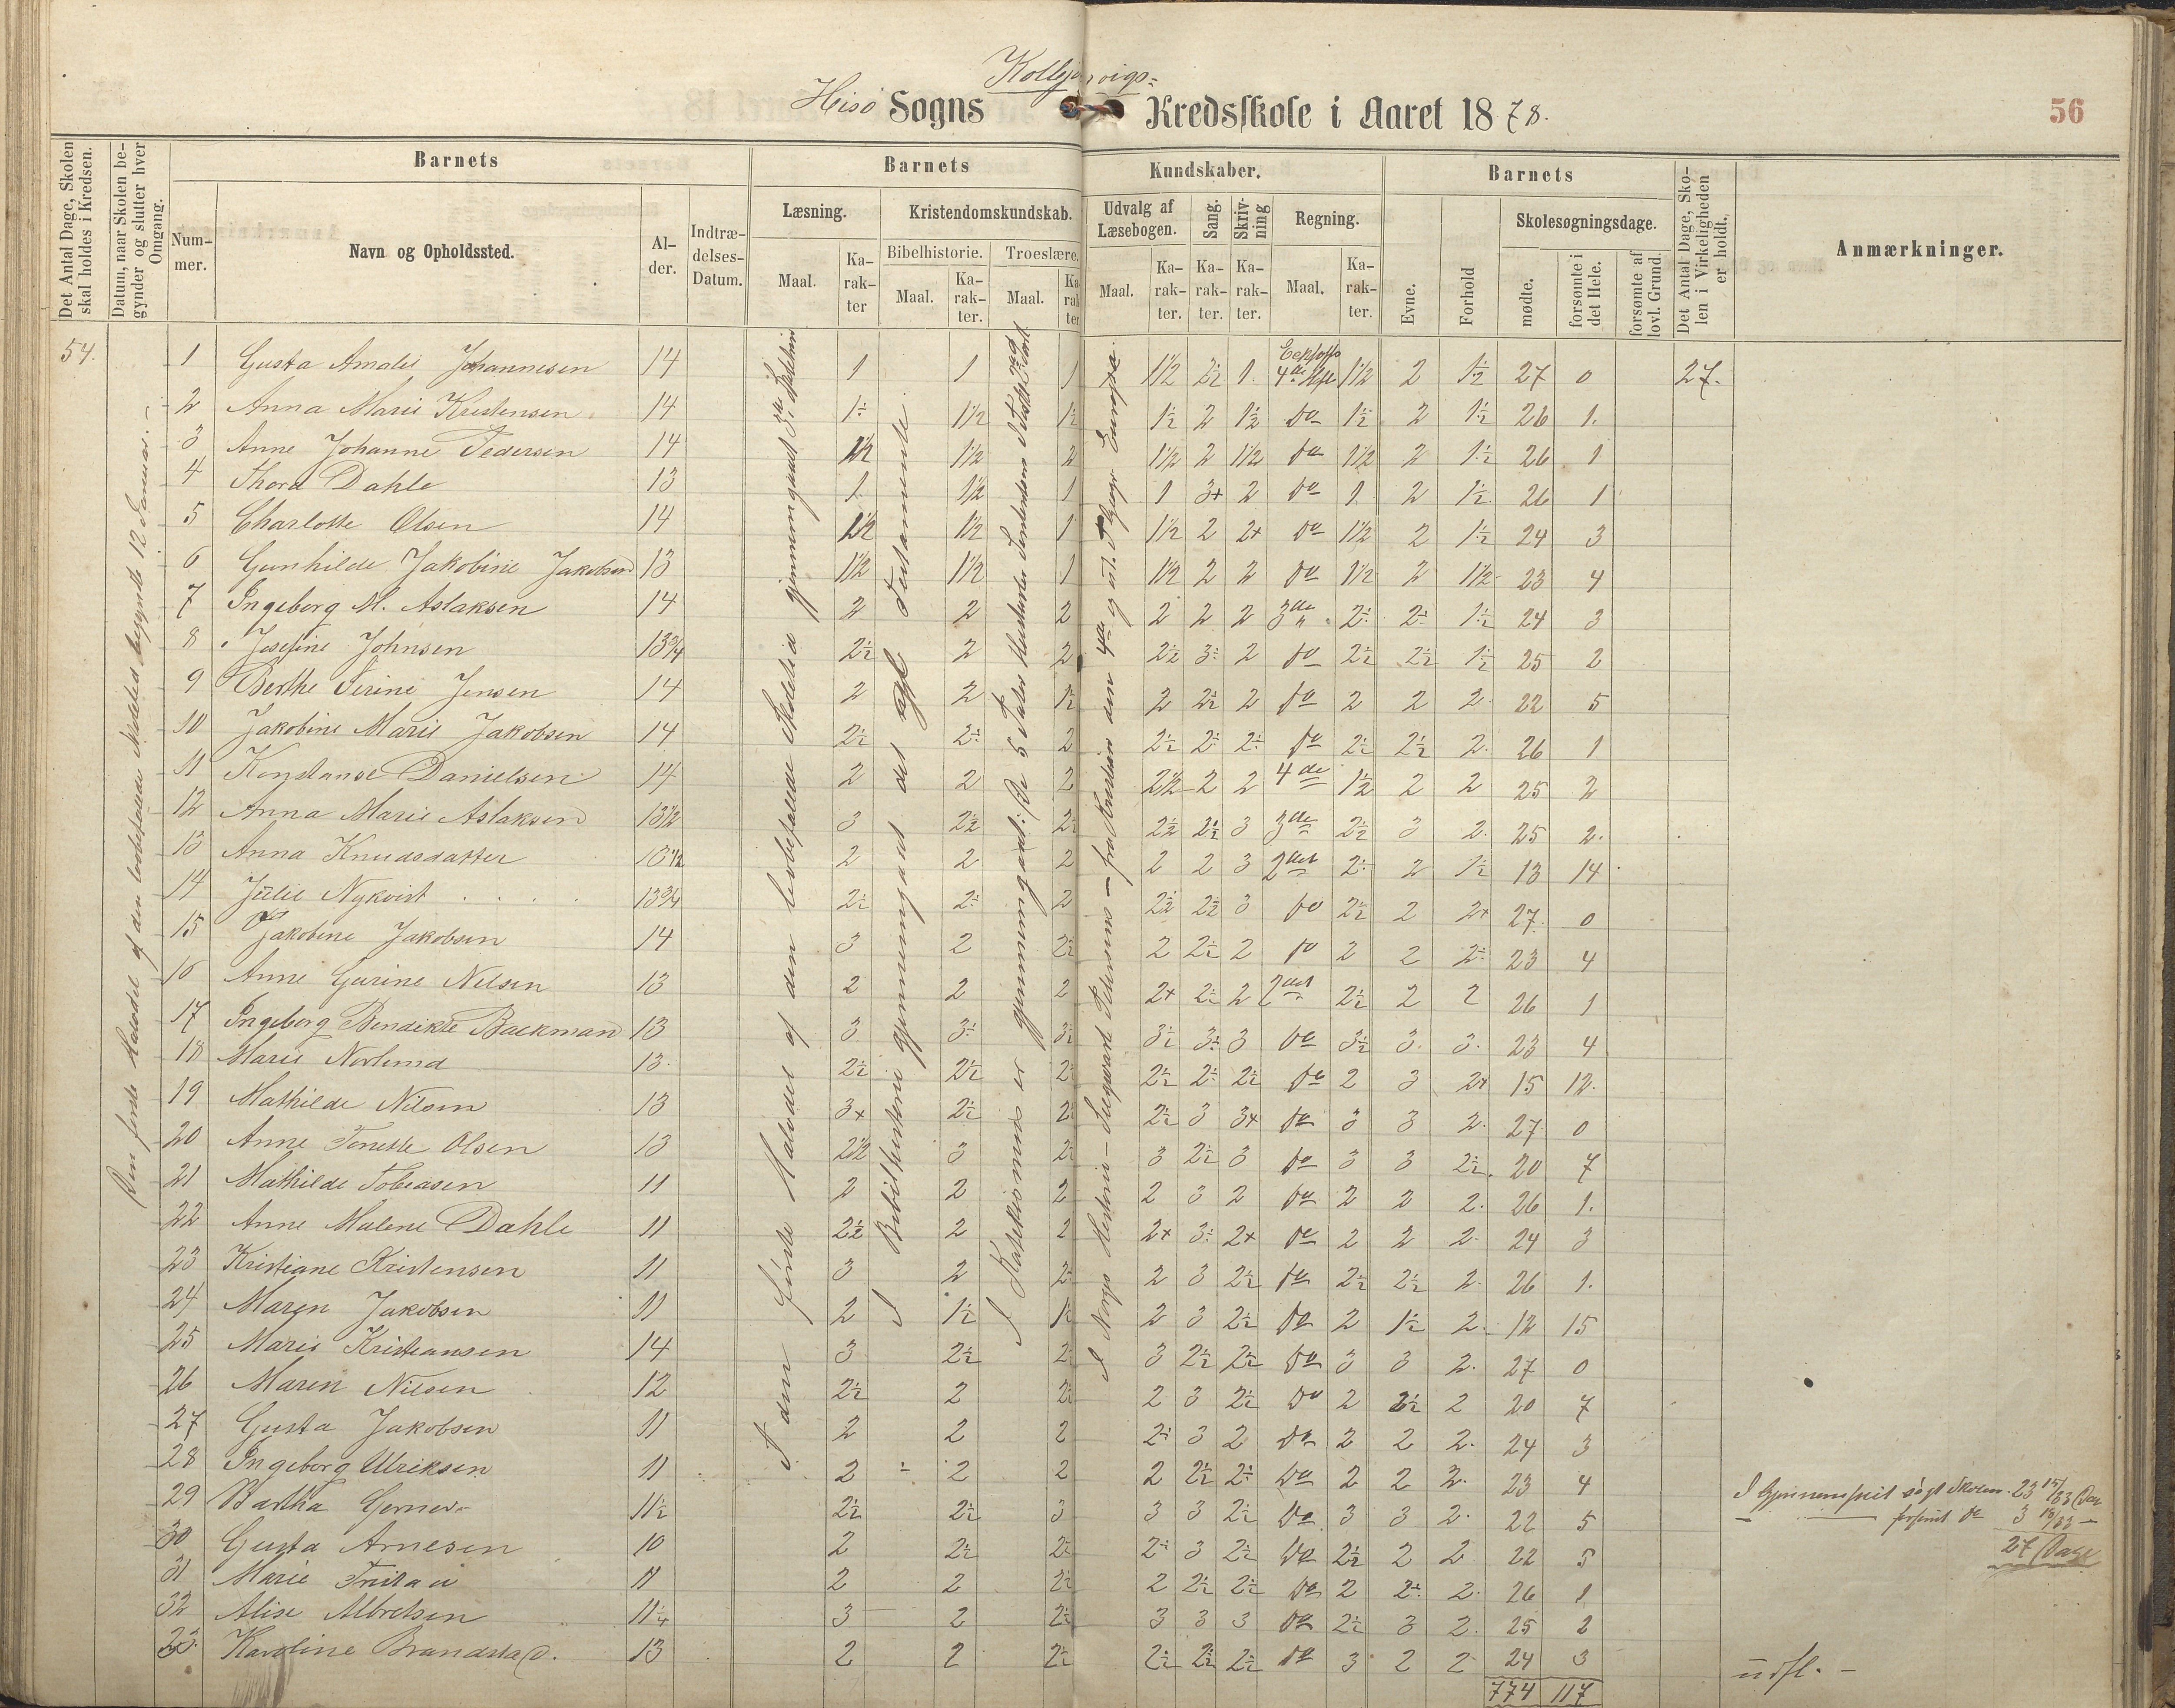 Kollevigs-
Hisø Sogns Kredsskole i Aaret 1878.
56
Det Antal Dage, Skolen skal holdes i Kredsen.
Datum, naar Skolen begynder og slutter hver Omgang.
Barnets
Nummer.
Navn og Opholdssted.
Alder.
Indtrædelses-Datum.
Barnets Kundskaber.
Læsning.
Maal.
Karakter
Kristendomskundskab.
Bibelhistorie.
Maal.
Karakter.
Troeslære.
Maal.
Karakter
Udvalg af Læsebogen.
Maal.
Karakter.
Sang.
Karakter.
Skrivning
Karakter.
Regning.
Maal.
Karakter.
Barnets
Evne.
Forhold
Skolesøgningsdage.
mødte.
forsømte i det Hele.
forsømte af lovl. Grund.
Det Antal Dage, Skolen i Virkeligheden er holdt.
Anmærkninger.
54.
27.
1 Gusta Amalie Johannesen 14 1 1 1 1½ 2½ 1. 4de Hefte 1½ 2 1½ 27 0
2 Anna Marie Kristensen 14 1½ 1½ 1½ 2 1½ Do 1½ 2 1½ 26 1.
3 Anne Johanne Pedersen 14 1½ 1½ 2 1½ 2 1½ Do 1½ 2 1½ 26 1
4 Thora Dahle 13 1 1½ 1 1 3+ 2 Do 1 2 1½ 26 1
5 Charlotte Olsen 14 1½ 1½ 1 1½ 2 2+ Do 1½ 2 1½ 24 3
6 Gunhilde Jakobine Jakobsen 13 1½ 1½ 1 1½ 2 2 Do 1½ 2 1½ 23 4
7 Ingeborg M. Aslaksen 14 2 2 2 2 2 2 3de 1½ 24 3
8 Josefine Johnsen 13¾ 2½ 2 2 2½ 2 Do 2½ 2½ 1½ 25 2
9 Berthe Serine Jensen 14 2 2 1½ 2 2½ 2 Do 2 2 2 22 5
10 Jakobine Marie Jakobsen 14 2½ 2 2½ Do 2½ 2½ 2. 26 1
11 Konstanse Danielsen 14 2 2 2 2½ 2 2 4de 1½ 2 2 25 2
12 Anna Marie Aslaksen 13½ 3 2½ 2½ 2½ 2½ 3 3de 2½ 3 2. 25 2.
13 Anna Knudsdatter 13½ 2 2 2 2 2 3 2det 2 1½ 13 14
14 Julie Nykvist 13¾ 2½ 2 2½ 2½ 3 Do 2½ 2 2+ 27 0
15 Jakobine Jakobsen 14 3 2 2½ 2 2½ 2 Do 2 2 23 4
16 Anne Gurine Nilsen 13 2 2 2 2+ 2½ 2 2det 2½ 2 2 26 1
17 Ingeborg Bendikte Backman 13 3 3½ 3½ 3 Do 3½ 3 3. 23 4
18 Marie Norlund 13 2½ 2½ 2½ 2½ Do 2 3 2+ 15 12.
19 Mathilde Nilsen 13 3+ 2½ 2½ 3 3+ Do 3 3 2. 27 0
20 Anne Tonette Olsen 13 2½ 3 3 2½ 3 Do 3 3 2½ 20 7
21 Mathilde Tobiasen 11 2 2 2 2 3 2 Do 2 2 2. 26 1.
22 Anne Malene Dahle 11 2½ 2 2 2+ 2+ Do 2 2 2 24 3
23 Kristiane Kristensen 11 3 2 2 3 2½ Do 2½ 2½ 2. 26 1.
24 Maren Jakobsen 11 2 1½ 1½ 2 3 2½ Do 2 1½ 2 12 15
25 Marie Kristiansen 14 3 2½ 3 2½ 2½ Do 3 3 2. 27 0
26 Maren Nilsen 12 2½ 2 2 3 2½ Do 2 2½ 2 20 7
27 Gusta Jakobsen 11 2 2 2 3 2 Do 2 2 2. 24 3
28 Ingeborg Ulriksen 11 2 2 2 2 2½ Do 2 2 2. 23 4
29 Bertha Gerner 11½ 2½ 2½ 3 3 3 2½ Do 3 3 2. 22 5
30 Gusta Arnesen 10 2 2½ 3 2½ Do 2½ 2 2 22 5
31 Marie Fritau 11 2 2 2½ 2 2½ 2½ Do 2 2. 26 1
32 Alise Albretsen 11¼ 3 2 2½ 3 3 3 Do 2½ 3 2. 25 2
33 Karoline Brandstad. 13 2 2 2½ 2½ 2½ 2½ Do 3 2 2 24 3
774 117
Den første Halvdel af den lovbefalede Skoletid begyndte 12 Januar.
I den første Halvdel af den lovbefalede Skoletid gjennemgaaet
I Bibelhistorien gjennemgaaet det nye Testamente.
I Katekismus er gjennemgaaet: De 5 Parter
I Norges Historie – Siegwart Petersens – fra
I Gjennemsnit søgt Skolen 23 15/33 Dag
forsømt Do 3 18/33 –
27 Dage
udfl. –